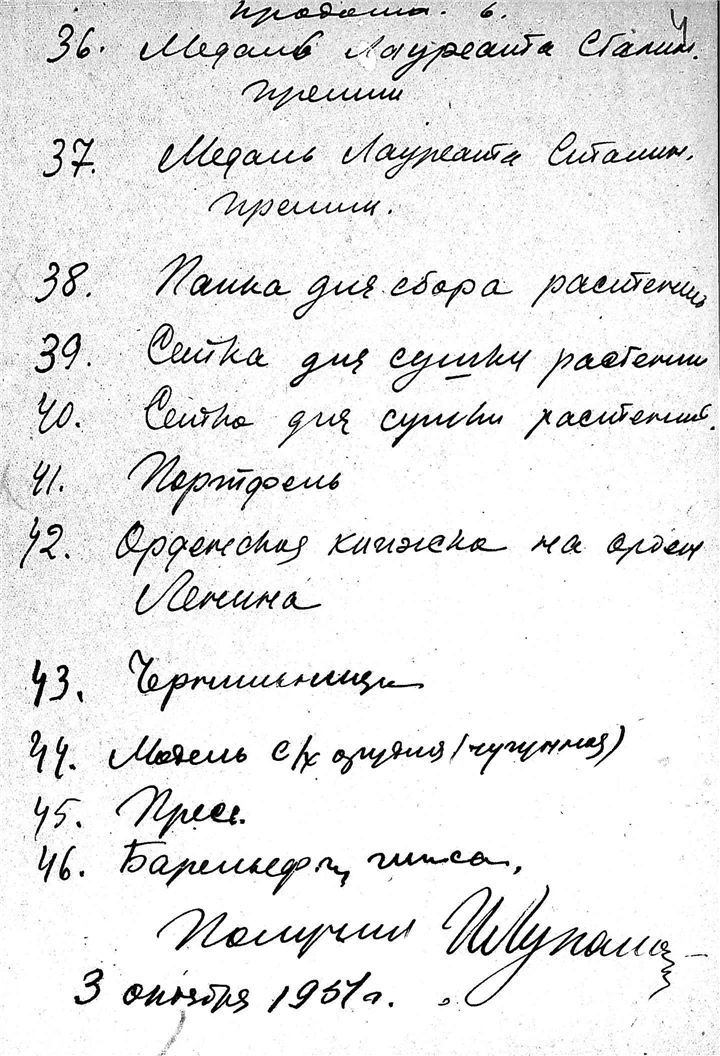 36. Медаль Лауреата Сталин.
премии
37. Медаль Лауреата Сталин.
премии.
38. Папка для сбора растений
39. Сетка для сушки растений
40. Сетка для сушки растений.
41. Портфель
42. Орденская книжка на орден
Ленина
43. Чернильница
44. Модель с/х орудия /чугунная)
45. Пресс.
46. Барельеф гипса.
Получил
3 октября 1951 г.